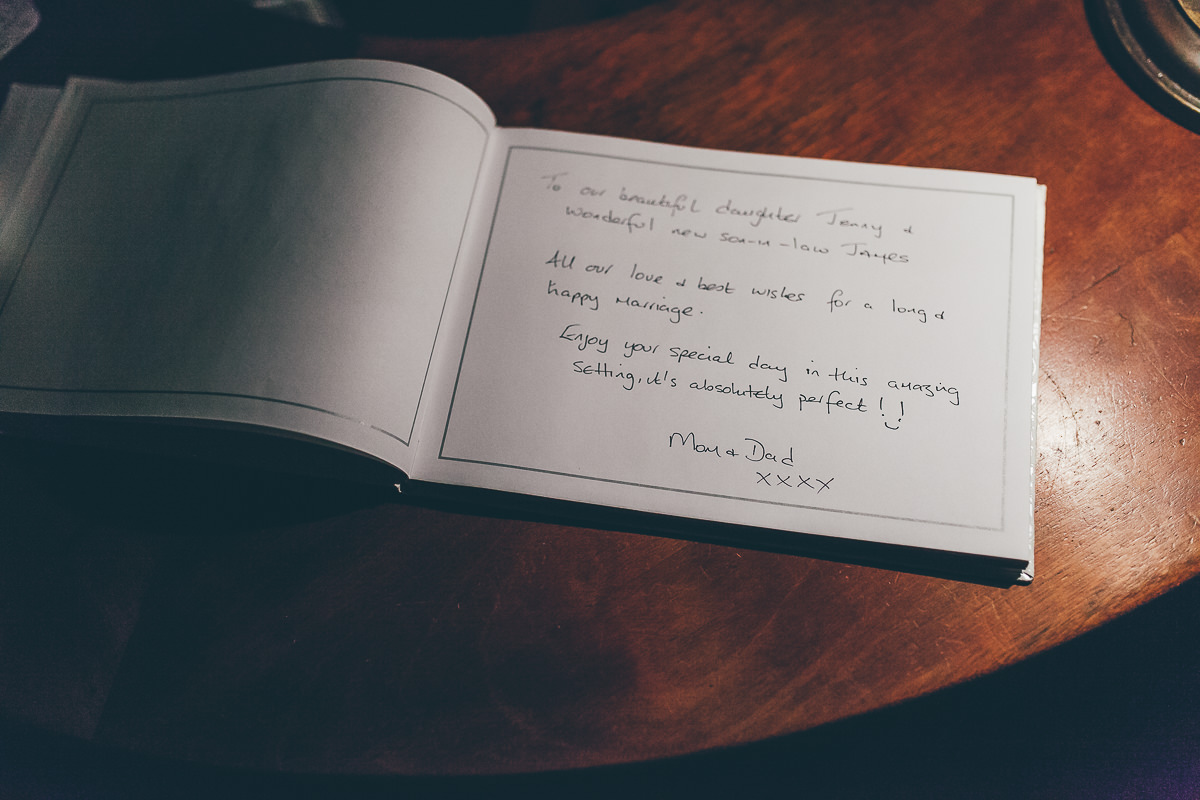 To our beautiful daughter Jenny &
wonderful new son-in-law James
All our love & best wishes for a long &
happy marriage.
Enjoy your special day in this amazing
setting, it's absolutely perfect !!
Mom & Dad
xxxx